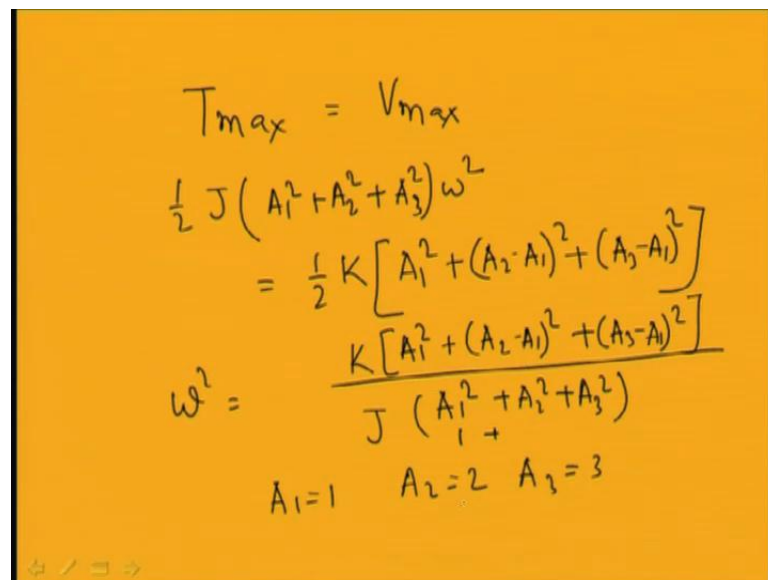 Tmax = Vmax
½ J(A₁²+A₂²+A₃²)ω²
= ½ K[A₁²+(A₂-A₁)²+(A₃-A₁)²]
K[A₁²+(A₂-A₁)²+(A₃-A₁)²]
ω² =
J (A₁²+A₂²+A₃²)
1 +
A₁=1 A₂=2 A₃=3